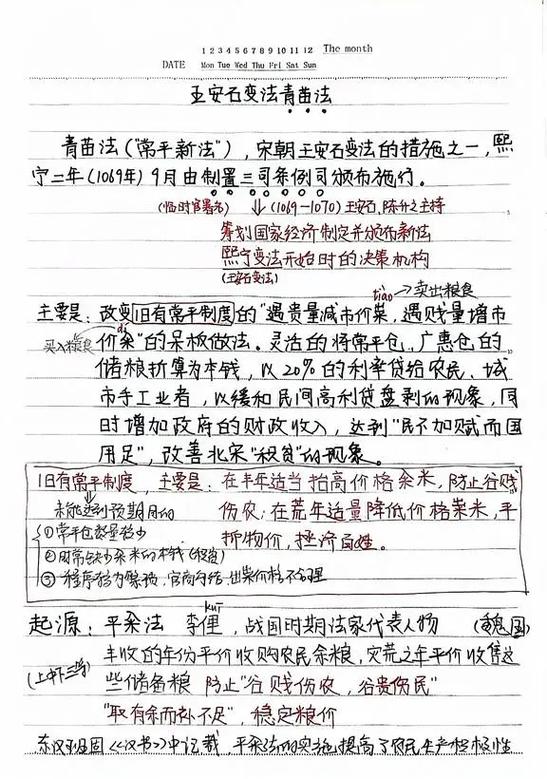 1 2 3 4 5 6 7 8 9 10 11 12 The month
DATE Mon Tue Wed Thu Fri Sat Sun
王安石变法青苗法
青苗法("常平新法"),宋朝王安石变法的措施之一,熙
宁二年(1069年)9月由制置三司条例司颁布施行。
(临时官署名) (1069-1070)王安石、陈升之主持
筹划国家经济制定并颁布新法
熙宁变法开始时的决策机构
(王安石变法)
tiào → 卖出粮食
主要是:改变旧有常平制度的"遇贵量减市价粜,遇贱量增市
买入粮食 dí
价籴"的呆板做法。灵活的将常平仓、广惠仓的
储粮折算为本钱,以20%的利率贷给农民、城
市手工业者,以缓和民间高利贷盘剥的现象,同
时增加政府的财政收入,达到"民不加赋而国
用足",改善北宋"积贫"的现象。
旧有常平制度,主要是:在丰年适当抬高价格籴米,防止谷贱
未能达到预期目的 伤农;在荒年适量降低价格粜米,平
①常平仓数量稀少 抑物价,拯济百姓。
②因常缺少籴米的本钱(积贫)
③程序繁琐,官商勾结,出粜价格不合理
起源:平籴法 李悝,战国时期法家代表人物 (魏国)
kuī
丰收的年份平价收购农民余粮,灾荒之年平价售
(上中下三等) 些储备粮 防止"谷贱伤农,谷贵伤民"
"取有余而补不足",稳定粮价
东汉班固《汉书》中记载,平籴法的实施提高了农民生产积极性